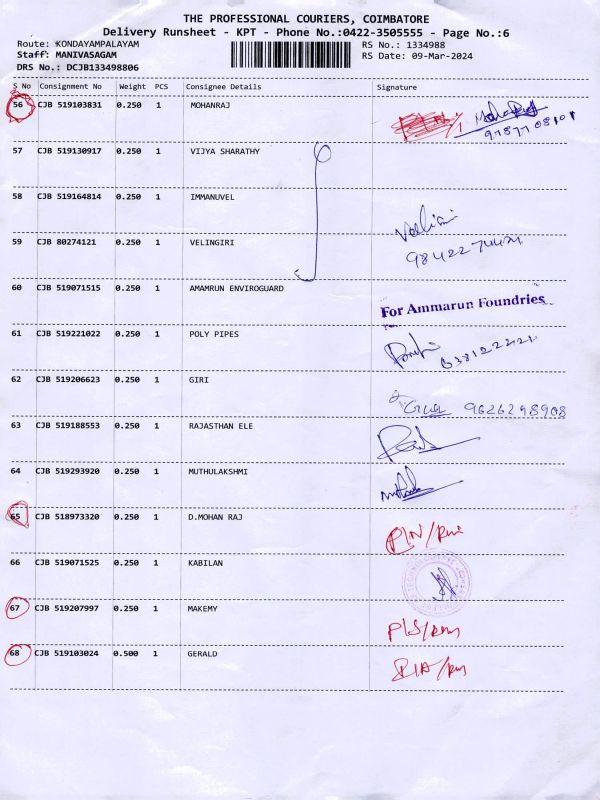 THE PROFESSIONAL COURIERS, COIMBATORE
Delivery Runsheet - KPT - Phone No.:0422-3505555 - Page No.:6
Route: KONDAYAMPALAYAM RS No.: 1334988
Staff: MANIVASAGAM RS Date: 09-Mar-2024
DRS No.: DCJB133498806
S No Consignment No Weight PCS Consignee Details Signature
56 CJB 519103831 0.250 1 MOHANRAJ
57 CJB 519130917 0.250 1 VIJYA SHARATHY
58 CJB 519164814 0.250 1 IMMANUVEL
59 CJB 80274121 0.250 1 VELINGIRI
60 CJB 519071515 0.250 1 AMAMRUN ENVIROGUARD
For Ammarun Foundries
61 CJB 519221022 0.250 1 POLY PIPES
62 CJB 519206623 0.250 1 GIRI
9626298908
63 CJB 519188553 0.250 1 RAJASTHAN ELE
64 CJB 519293920 0.250 1 MUTHULAKSHMI
65 CJB 518973320 0.250 1 D.MOHAN RAJ
66 CJB 519071525 0.250 1 KABILAN
67 CJB 519207997 0.250 1 MAKEMY
68 CJB 519103024 0.500 1 GERALD